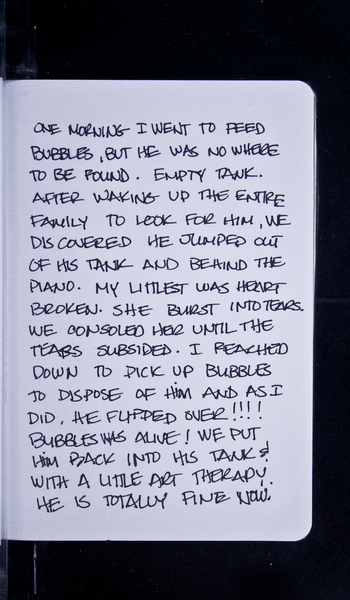 ONE MORNING I WENT TO FEED
BUBBLES, BUT HE WAS NO WHERE
TO BE FOUND. EMPTY TANK.
AFTER WAKING UP THE ENTIRE
FAMILY TO LOOK FOR HIM, WE
DISCOVERED HE JUMPED OUT
OF HIS TANK AND BEHIND THE
PIANO. MY LITTLEST WAS HEART
BROKEN. SHE BURST INTO TEARS.
WE CONSOLED HER UNTIL THE
TEARS SUBSIDED. I REACHED
DOWN TO PICK UP BUBBLES
TO DISPOSE OF HIM AND AS I
DID, HE FLIPPED OVER!!!!
BUBBLES WAS ALIVE! WE PUT
HIM BACK INTO HIS TANK &
WITH A LITTLE ART THERAPY.
HE IS TOTALLY FINE NOW.